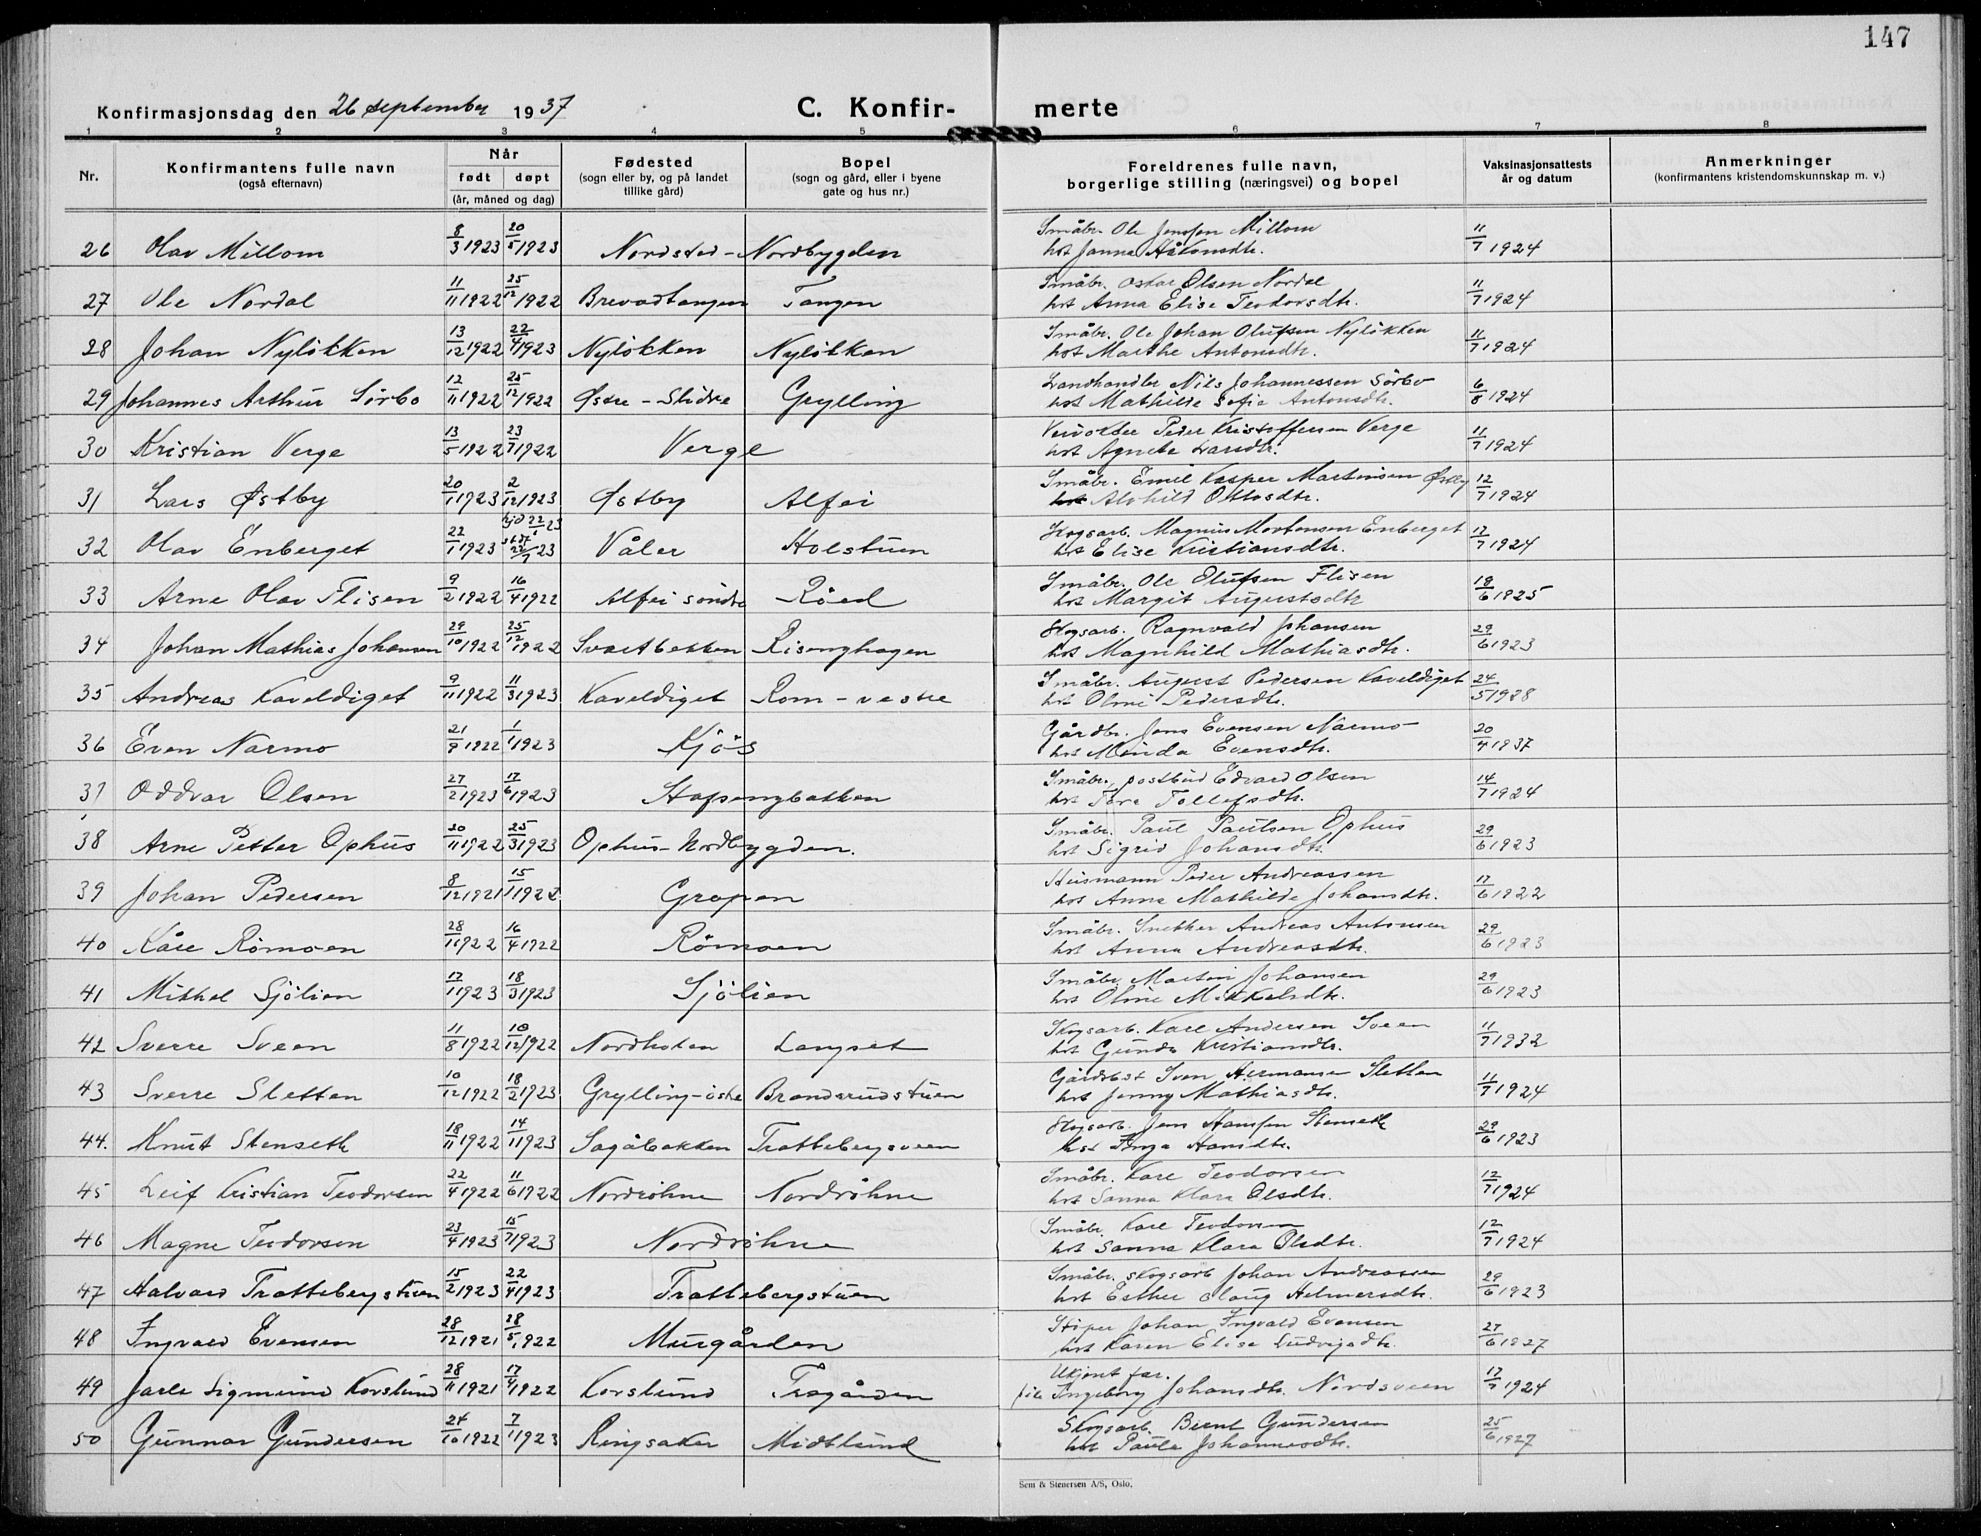 147
Konfirmasjonsdag den 26 september 1937
C. Konfir- merte
1 2 3 4 5 6 7 8
Nr.
Konfirmantens fulle navn
(også efternavn)
Når
født døpt
(år, måned og dag)
Fødested
(sogn eller by, og på landet
tillike gård)
Bopel
(sogn og gård, eller i byene
gate og hus nr.)
Foreldrenes fulle navn,
borgerlige stilling (næringsvei) og bopel
Vaksinasjonsattests
år og datum
Anmerkninger
(konfirmantens kristendomskunnskap m. v.)
26 Olav Millom 8/3 1923 20/5 1923 Nordsted - Nordbygden Småbr. Ole Jensen Millom
hst Janna Håkonsdtr. 11/7 1924
27 Ole Nordal 11/11 1922 25/12 1922 Brevadtangen Tangen Småbr. Oskar Olsen Nordal
hst Anna Elise Teodorsdtr. 11/7 1924
28 Johan Nyløkken 13/12 1922 22/4 1923 Nyløkken Nyløkken Småbr. Ole Johan Olufsen Nyløkken
hst Marthe Antonsdtr. 11/7 1924
29 Johannes Arthur Sørbo 12/11 1922 25/12 1922 Østre - Slidre Grylling Landhandler Nils Johannessen Sørbo
hst Mathilde Sofie Antonsdtr. 6/8 1924
30 Kristian Verge 13/5 1922 23/7 1922 Verge Peder Kristoffersen Verge
hst Agnete Larsdtr. 11/7 1924
31 Lars Østby 20/1 1923 2/12 1923 Østby Alfei Småbr. Emil Kasper Martinsen Østby
hst Alvhild Ottosdtr. 12/7 1924
32 Olav Enberget 22/1 1923 hjd 22/1 23
22/7 23 Våler Holstuen Skogsarb. Magnus Mortensen Enberget
hst Elise Kristiansdtr. 17/7 1924
33 Arne Olav Flisen 9/2 1922 16/4 1922 Alfei søndre Røed Småbr. Ole Olufsen Flisen
hst Margit Augustsdtr 18/6 1925
34 Johan Mathias Johansen 29/10 1922 25/12 1922 Svartbekken Risenghagen Skogsarb. Ragnvald Johansen
hst Magnhild Mathiasdtr. 29/6 1923
35 Andreas Kaveldiget 9/11 1922 11/3 1923 Kaveldiget Rom - vestre Småbr. August Pedersen Kaveldiget
hst Olmi Pedersdtr. 24/5 1928
36 Even Narmo 21/9 1922 1/1 1923 Kjøs Gårdbr. Jens Evensen Narmo
hst Minda Evensdtr. 20/4 1937
37 Oddvar Olsen 27/2 1923 17/6 1923 Hafsengbakken Småbr., postbud Edvard Olsen
hst Tora Tollefsdtr. 14/7 1924
38 Arne Petter Ophus 20/11 1922 25/3 1923 Ophus - Nordbygden. Småbr. Paul Paulsen Ophus
hst Sigrid Johansdtr. 29/6 1923
39 Johan Pedersen 8/12 1921 15/1 1922 Gropen Husmann Peder Andreassen
hst Anna Mathilde Johansdtr. 17/6 1922
40 Kåre Rømoen 28/1 1922 16/4 1922 Rømoen Småbr. Snekker Andreas Antonsen
hst Anna Andreasdtr. 29/6 1923
41 Mikkel Sjølien 17/1 1923 18/3 1923 Sjølien Småbr. Martin Johansen
hst Oline Mikkelsdtr. 29/6 1923
42 Sverre Sveen 11/8 1922 10/12 1922 Nordholen Langset Skogsarb. Karl Andersen Sveen
hst Gunda Kristiansdtr. 11/7 1932
43 Sverre Sletten 10/12 1922 18/2 1923 Grylling - østre Brandsrudstuen Gårdbest Sven Hermansen Sletten
hst Jenny Mathiasdtr. 11/7 1924
44. Knut Stenseth 18/11 1922 14/1 1923 Sagåbakken Trattebergsveen Skogsarb. Jens Hansen Stenseth
hst Inga Hansdtr. 29/6 1923
45 Leif Kristian Teodorsen 22/4 1922 11/6 1922 Nordrøhne Nordrøhne Småbr. Karl Teodorsen
hst Sanna Klara Olsdtr. 12/7 1924
46 Magne Teodorsen 23/4 1923 15/7 1923 Nordrøhne Småbr. Karl Teodorsen
hst Sanna Klara Olsdtr. 12/7 1924
47 Halvard Trattebergstuen 15/2 1923 22/4 1923 Trattebergstuen Småbr. skogsarb Johan Andreassen
hst Esther Olaug Helmersdtr. 29/6 1923
48 Ingvald Evensen 28/12 1921 28/5 1922 Murgården Støper Johan Ingvald Evensen
hst Karen Elise Ludvigsdtr. 27/6 1927
49 Jarle Sigmund Korslund 28/11 1921 17/4 1922 Korslund Trogården Ukjent far.
pike Ingeborg Johansdtr. Nordsveen 17/7 1924
50 Gunnar Gundersen 24/10 1922 7/1 1923 Ringsaker Midtlund Skogsarb. Bernt Gundersen
hst Paula Johannesdtr. 25/6 1927
Sem & Stenersen A/S, Oslo.